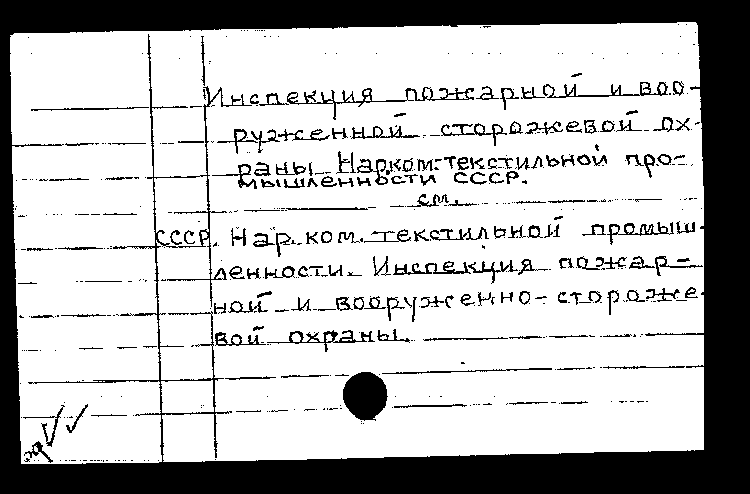 Инспекция пожарной и воо-
руженной сторожевой ох-
раны Нарком. текстильной про-
мышленности СССР.
см.
СССР. Нар. ком. текстильной промыш-
ленности. Инспекция пожар-
ной и вооруженно-стороже-
вой охраны.